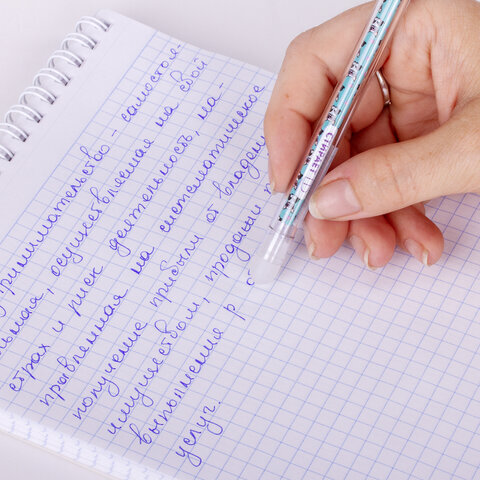 ринимательство - самостоя-
льная, осуществляемая на свой
страх и риск деятельность, на-
правленная на систематическое
получение прибыли от владен
имуществом, продажи
выполнения р о
услуг.
СТИРАЕТ